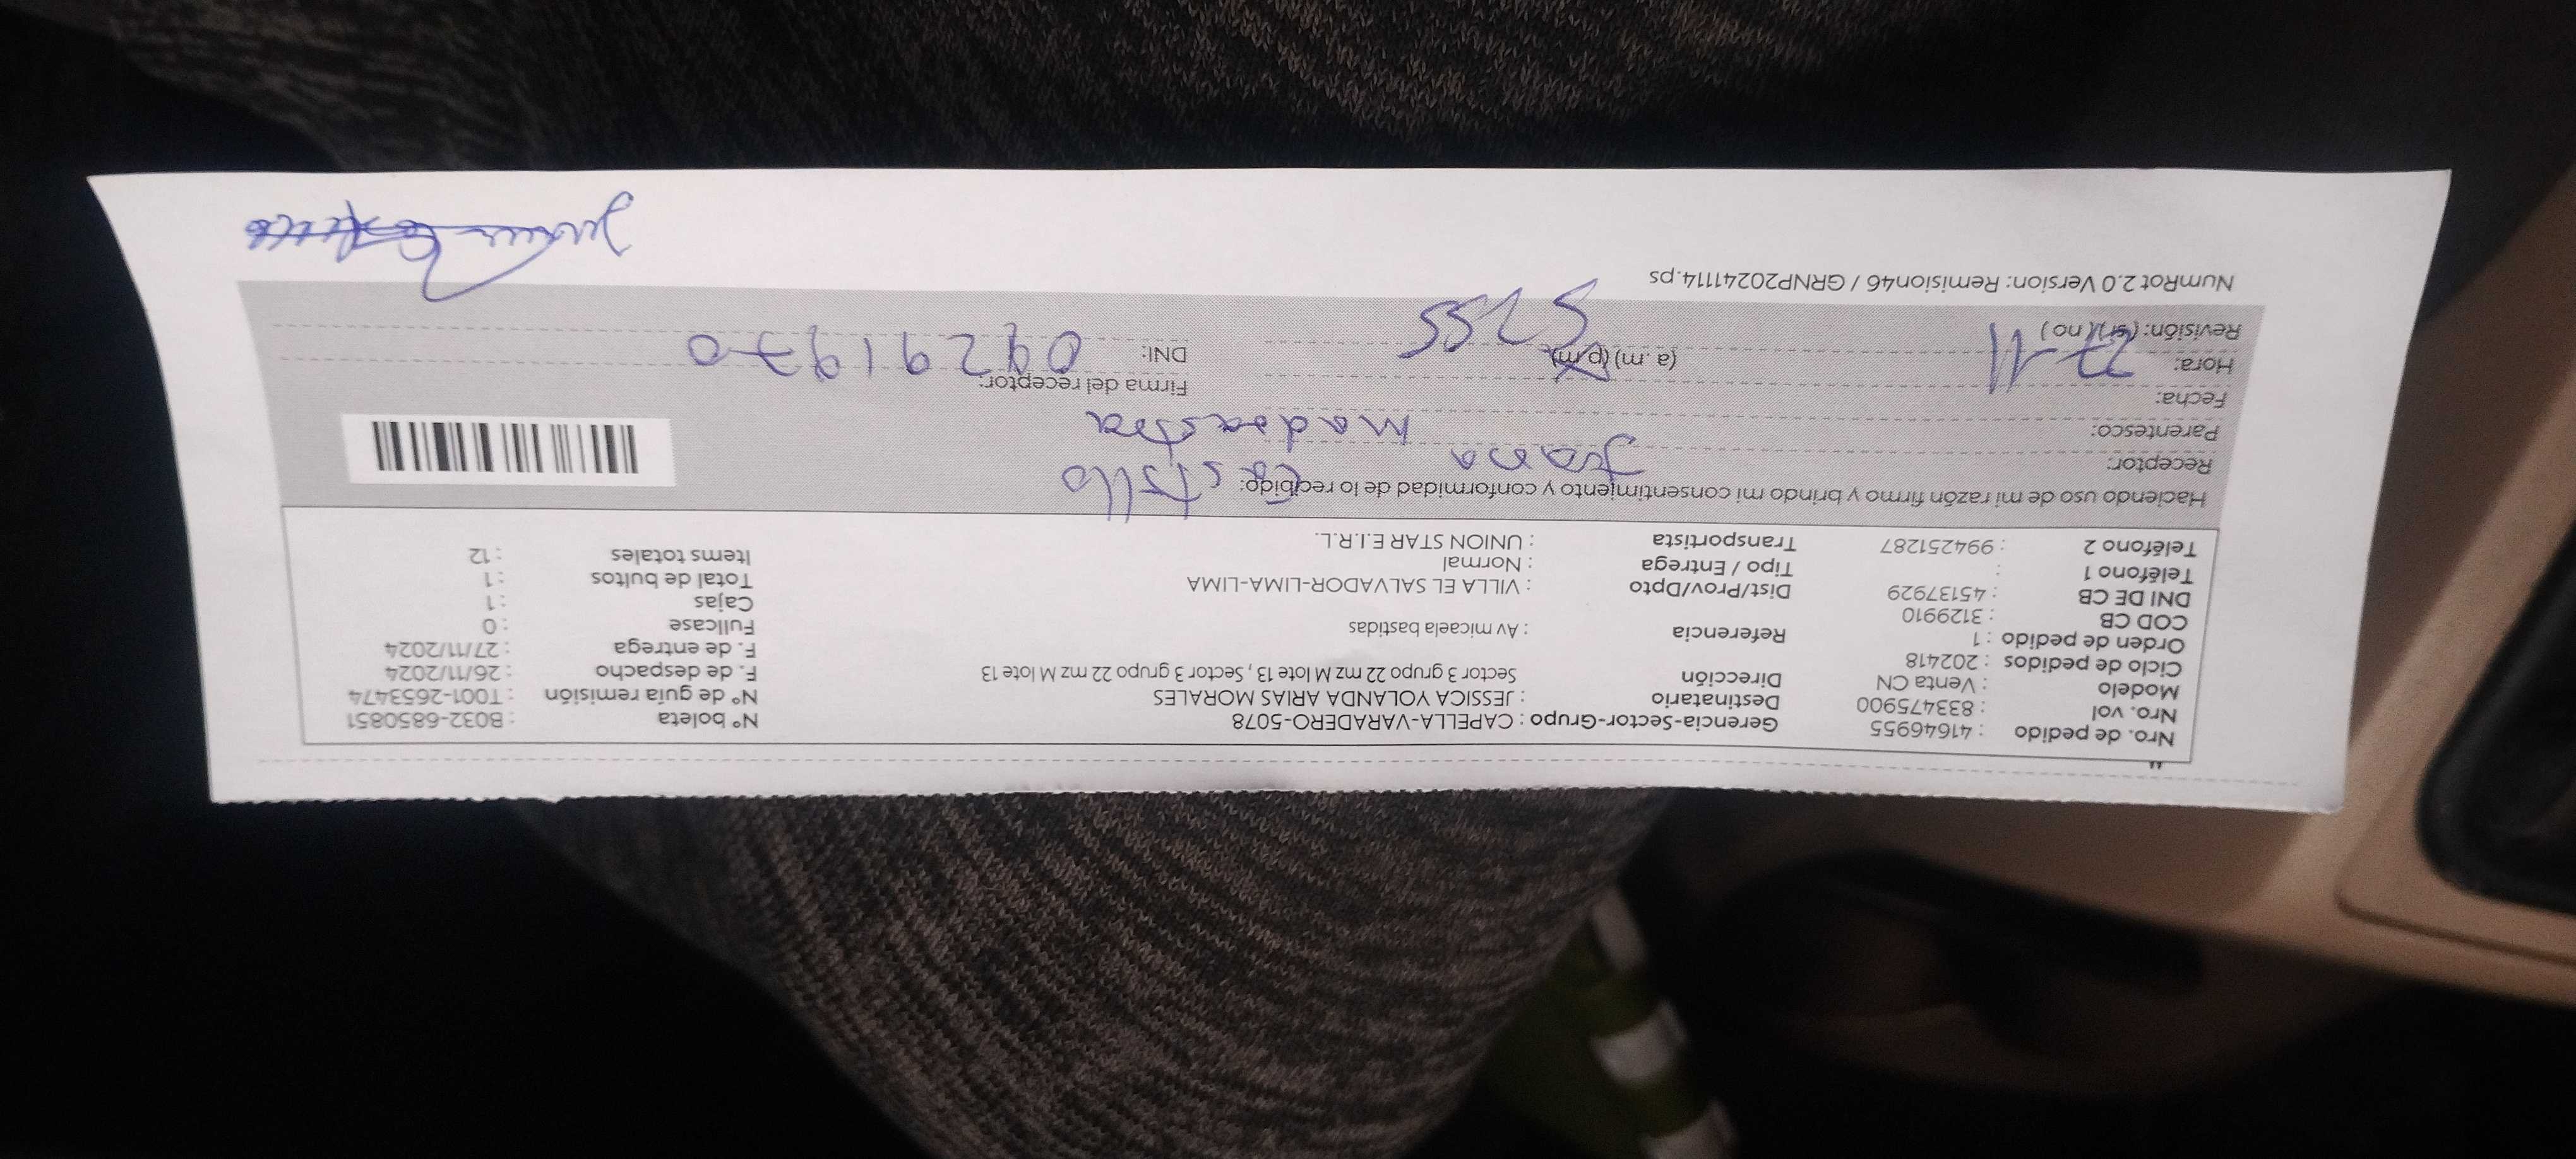 Nro. de pedido : 41646955 Gerencia-Sector-Grupo : CAPELLA-VARADERO-5078 N° boleta : B032-6850851
Nro. vol : 833475900 Destinatario : JESSICA YOLANDA ARIAS MORALES N° de guía remisión : T001-2653474
Modelo : Venta CN Dirección Sector 3 grupo 22 mz M lote 13 , Sector 3 grupo 22 mz M lote 13 F. de despacho : 26/11/2024
Ciclo de pedidos : 202418 F. de entrega : 27/11/2024
Orden de pedido : 1 Referencia : Av micaela bastidas Fullcase : 0
COD CB : 3129910 Cajas : 1
DNI DE CB : 45137929 Dist/Prov/Dpto : VILLA EL SALVADOR-LIMA-LIMA Total de bultos : 1
Teléfono 1 : Tipo / Entrega : Normal Items totales : 12
Teléfono 2 : 994251287 Transportista : UNION STAR E.I.R.L.
Haciendo uso de mi razón firmo y brindo mi consentimiento y conformidad de lo recibido:
Receptor: Juana Castillo
Parentesco: Madrastra
Fecha: 27-11
Firma del receptor:
Hora: (a.m) (p.m) DNI:
Revisión: (si) (no)
NumRot 2.0 Version: Remision46 / GRNP20241114.ps